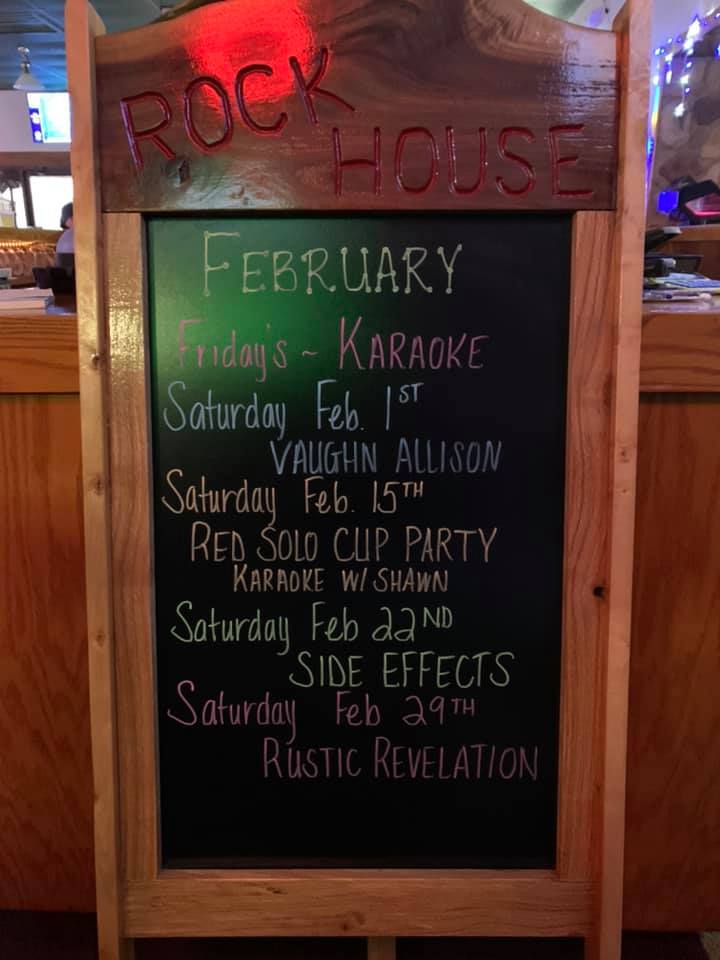 ROCK
HOUSE
FEBRUARY
Friday's ~ KARAOKE
Saturday Feb. 1ST
VAUGHN ALLISON
Saturday Feb. 15TH
RED SOLO CUP PARTY
KARAOKE W/ SHAWN
Saturday Feb 22ND
SIDE EFFECTS
Saturday Feb 29TH
RUSTIC REVELATION